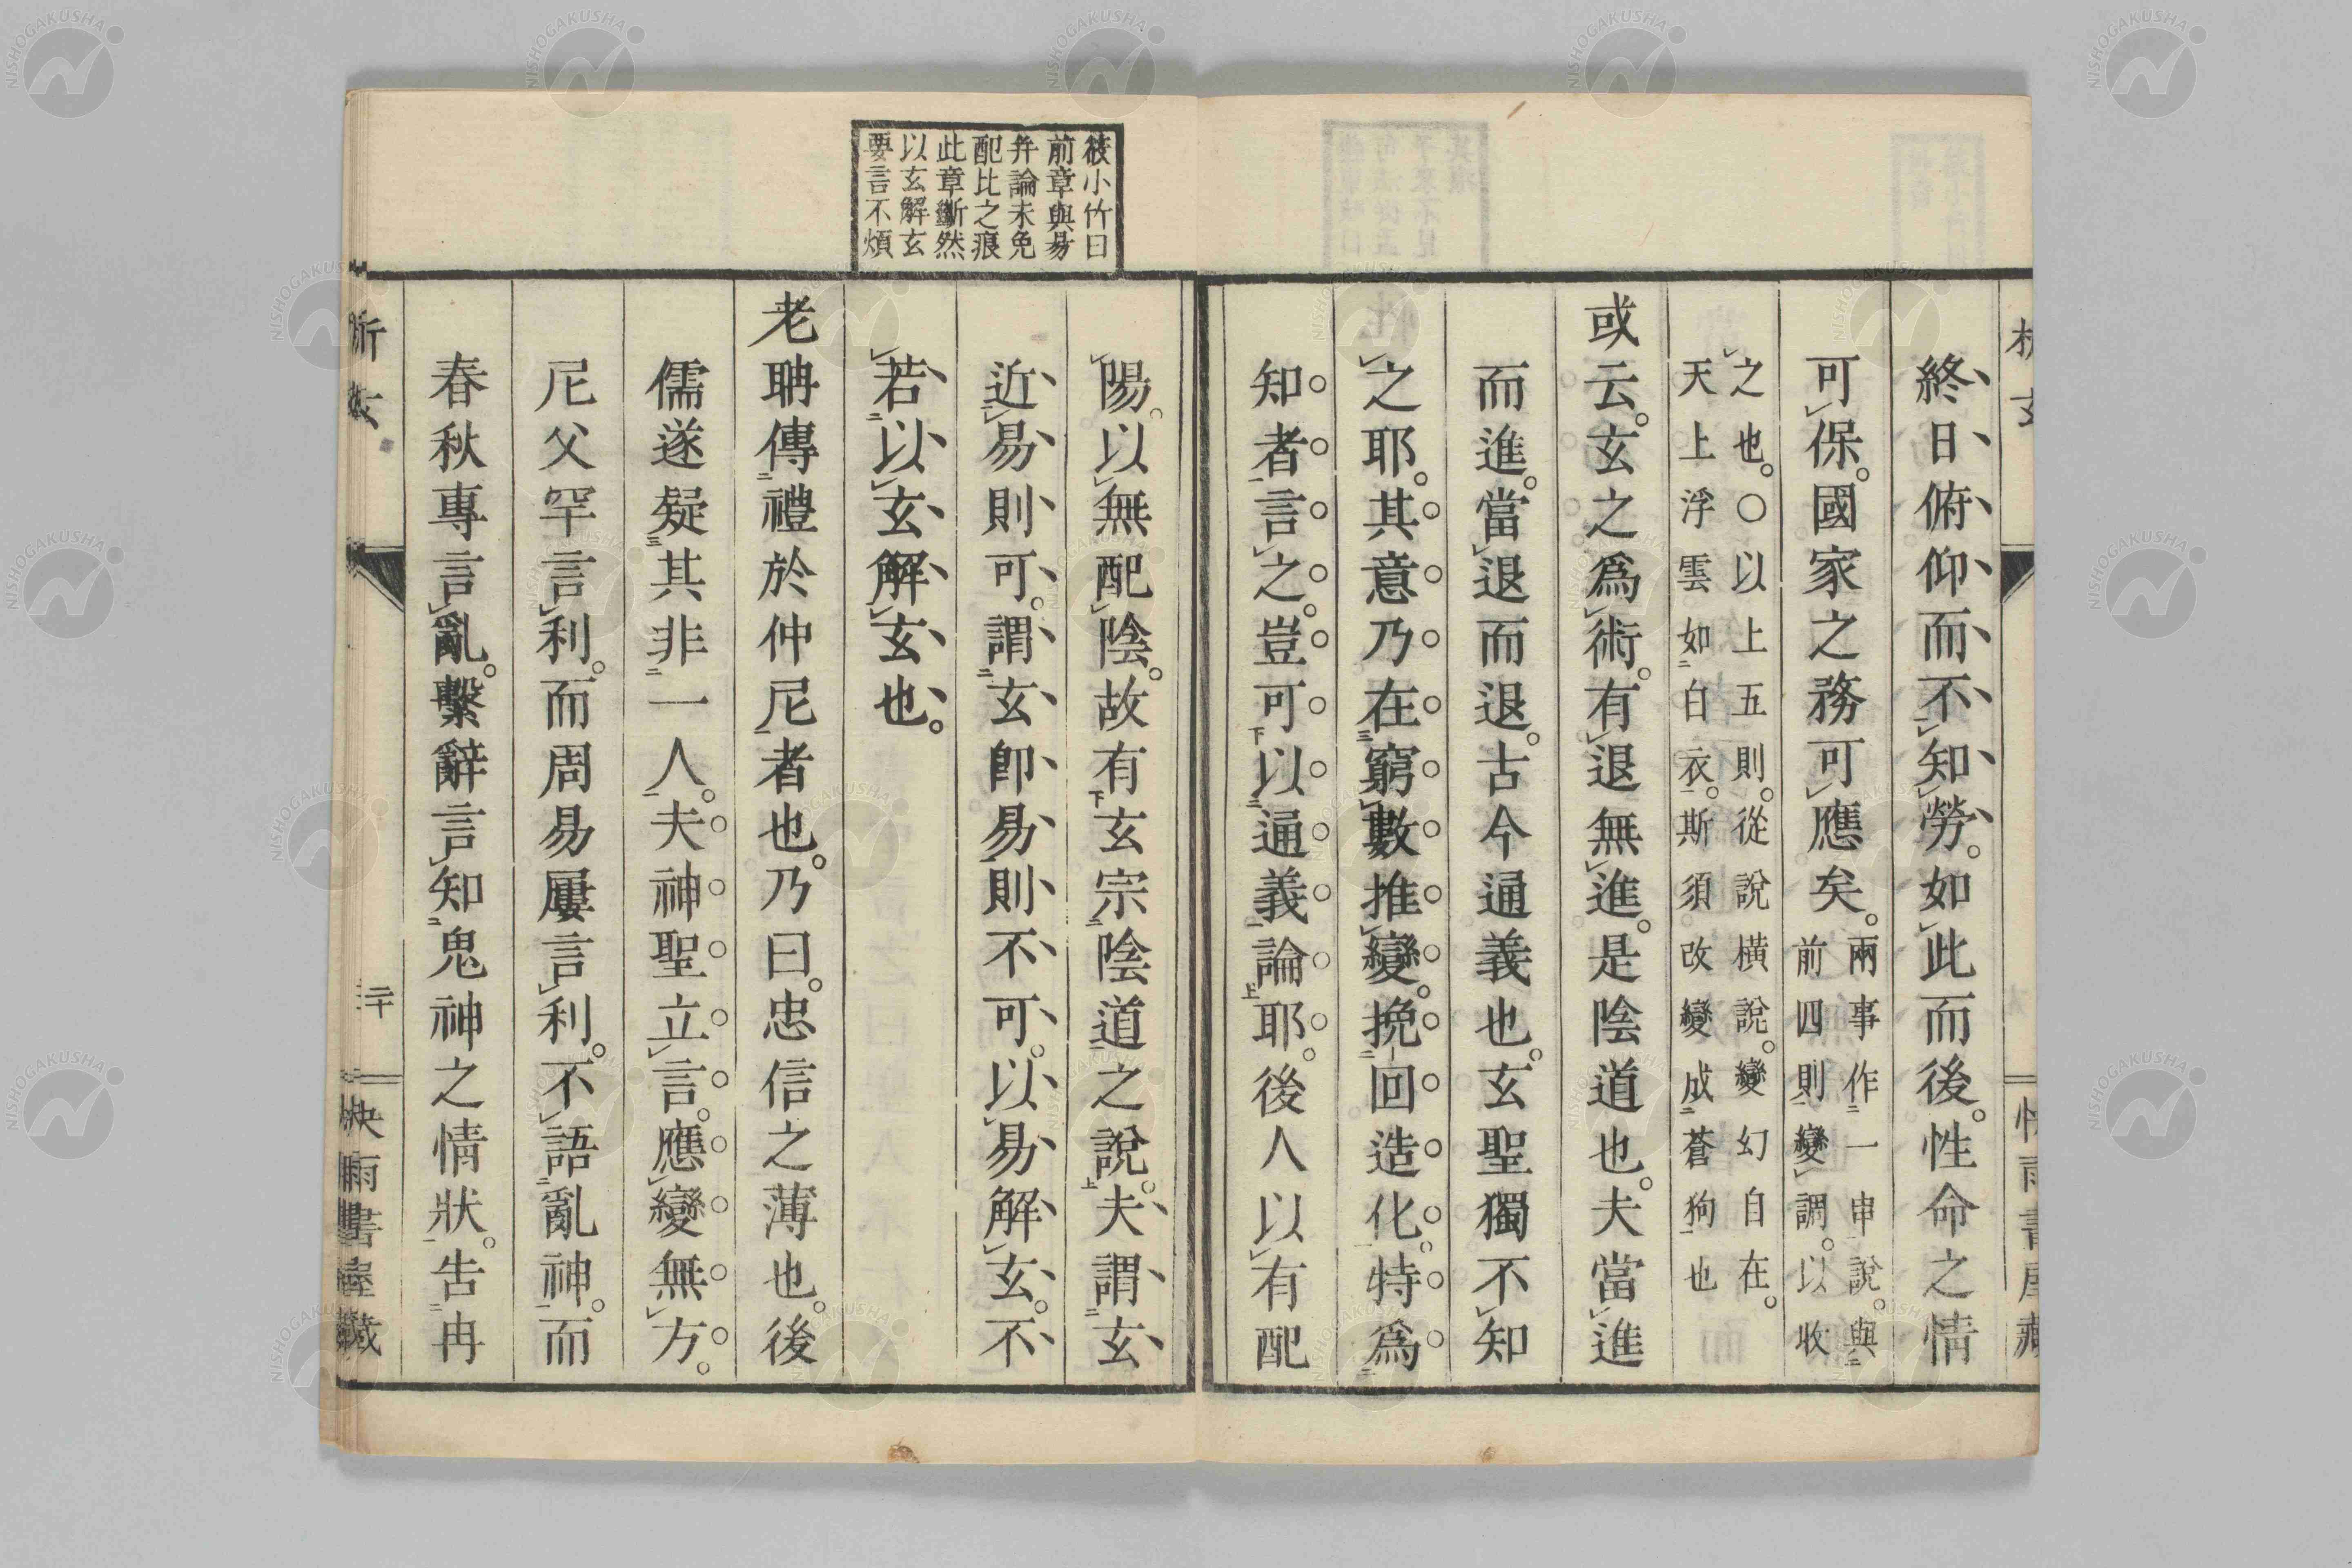 終日俯仰而不知勞。如此而後。性命之情
可保。國家之務可應矣。兩事作一串說。與
前四則變調。以收
之也。〇以上五則。從說橫說。變幻自在。
天上浮雲如白衣。斯須改變成蒼狗也
或云。玄之爲術。有退無進。是陰道也。夫當進
而進。當退而退。古今通義也。玄聖獨不知
之耶。其意乃在窮數推變。挽回造化。特爲
知者言之。豈可以通義論耶。後人以有配
筱小竹曰
前章與易
幷論未免
配比之痕
此章斷然
以玄解玄
要言不煩
陽。以無配陰。故有玄宗陰道之說。夫謂玄
近易則可。謂玄卽易則不可。以易解玄。不
若以玄解玄也。
老聃傳禮於仲尼者也。乃曰。忠信之薄也。後
儒遂疑其非一人。夫神聖立言。應變無方。
尼父罕言利。而周易屢言利。不語亂神。而
春秋專言亂。繫辭言知鬼神之情狀。告冉
析玄
二十
快雨書屋藏
NISHOGAKUSHA